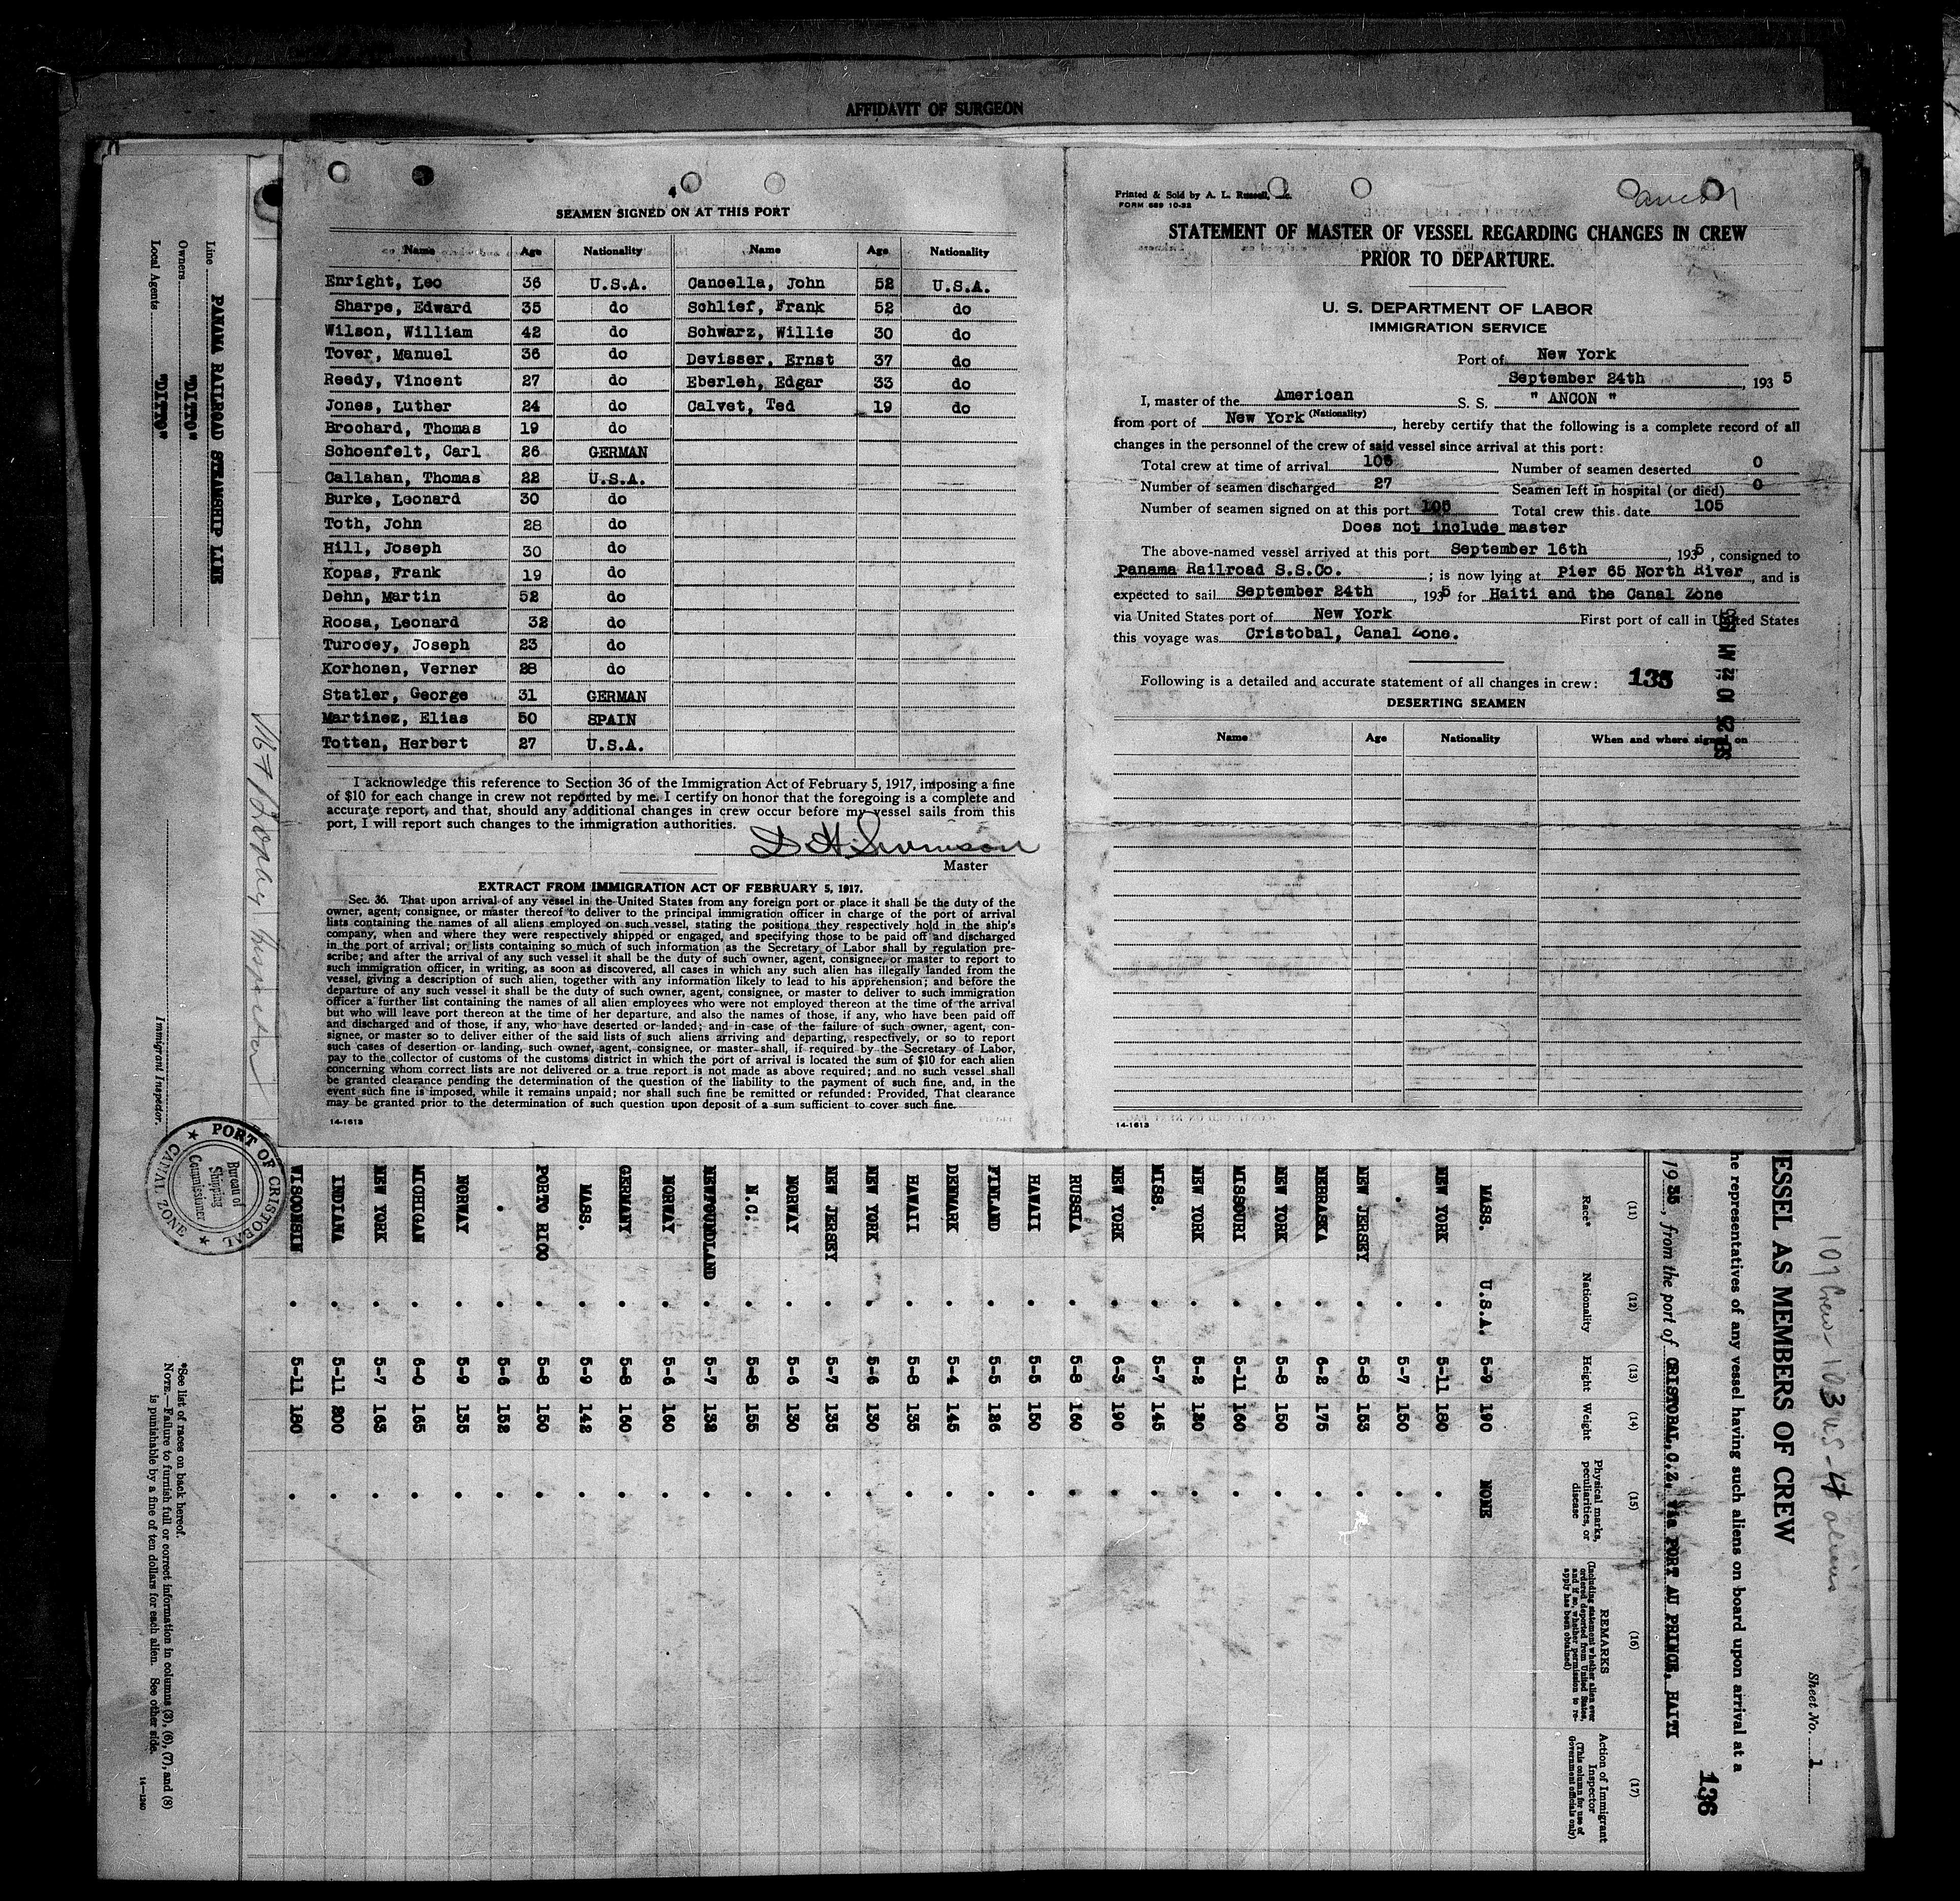 AFFIDAVIT OF SURGEON
4
SEAMEN SIGNED ON AT THIS PORT
Name Age Nationality Name Age Nationality
Enright, Leo 36 U.S.A. Cancella, John 52 U.S.A.
Sharpe, Edward 35 do Schlief, Frank 52 do
Wilson, William 42 do Schwarz, Willie 30 do
Tover, Manuel 36 do Devisser, Ernst 37 do
Reedy, Vincent 27 do Eberleh, Edgar 33 do
Jones, Luther 24 do Calvet, Ted 19 do
Brochard, Thomas 19 do
Schoenfelt, Carl 26 GERMAN
Callahan, Thomas 22 U.S.A.
Burke, Leonard 30 do
Toth, John 28 do
Hill, Joseph 30 do
Kopas, Frank 19 do
Dehn, Martin 52 do
Roosa, Leonard 32 do
Turocey, Joseph 23 do
Korhonen, Verner 28 do
Statler, George 31 GERMAN
Martinez, Elias 50 SPAIN
Totten, Herbert 27 U.S.A.
I acknowledge this reference to Section 36 of the Immigration Act of February 5, 1917, imposing a fine
of $10 for each change in crew not reported by me. I certify on honor that the foregoing is a complete and
accurate report, and that, should any additional changes in crew occur before my vessel sails from this
port, I will report such changes to the immigration authorities.
Master
EXTRACT FROM IMMIGRATION ACT OF FEBRUARY 5, 1917.
Sec. 36. That upon arrival of any vessel in the United States from any foreign port or place it shall be the duty of the
owner, agent, consignee, or master thereof to deliver to the principal immigration officer in charge of the port of arrival
lists containing the names of all aliens employed on such vessel, stating the positions they respectively hold in the ship's
company, when and where they were respectively shipped or engaged, and specifying those to be paid off and discharged
in the port of arrival; or lists containing so much of such information as the Secretary of Labor shall by regulation pre-
scribe; and after the arrival of any such vessel it shall be the duty of such owner, agent, consignee, or master to report to
such immigration officer, in writing, as soon as discovered, all cases in which any such alien has illegally landed from the
vessel, giving a description of such alien, together with any information likely to lead to his apprehension; and before the
departure of any such vessel it shall be the duty of such owner, agent, consignee, or master to deliver to such immigration
officer a further list containing the names of all alien employees who were not employed thereon at the time of the arrival
but who will leave port thereon at the time of her departure, and also the names of those, if any, who have been paid off
and discharged and of those, if any, who have deserted or landed; and in case of the failure of such owner, agent, con-
signee, or master so to deliver either of the said lists of such aliens arriving and departing, respectively, or so to report
such cases of desertion or landing, such owner, agent, consignee, or master shall, if required by the Secretary of Labor,
pay to the collector of customs of the customs district in which the port of arrival is located the sum of $10 for each alien
concerning whom correct lists are not delivered or a true report is not made as above required; and no such vessel shall
be granted clearance pending the determination of the question of the liability to the payment of such fine, and, in the
event such fine is imposed, while it remains unpaid; nor shall such fine be remitted or refunded: Provided, That clearance
may be granted prior to the determination of such question upon deposit of a sum sufficient to cover such fine.
14-1613
Printed & Sold by A. L. Russell,
FORM 689 10-32
Ancon
STATEMENT OF MASTER OF VESSEL REGARDING CHANGES IN CREW
PRIOR TO DEPARTURE.
U. S. DEPARTMENT OF LABOR
IMMIGRATION SERVICE
Port of New York
September 24th, 1935
I, master of the American S. S. " ANCON "
(Nationality)
from port of New York, hereby certify that the following is a complete record of all
changes in the personnel of the crew of said vessel since arrival at this port:
Total crew at time of arrival Number of seamen deserted 0
Number of seamen discharged 27 Seamen left in hospital (or died) 0
Number of seamen signed on at this port 105 Total crew this date 105
Does not include master
The above-named vessel arrived at this port September 16th, 1935, consigned to
Panama Railroad S.S.Co. ; is now lying at Pier 65 North River, and is
expected to sail September 24th, 1935 for Haiti and the Canal Zone
via United States port of New York First port of call in United States
this voyage was Cristobal, Canal Zone.
Following is a detailed and accurate statement of all changes in crew: 135
DESERTING SEAMEN
Name Age Nationality When and where signed on
14-1613
Line PANAMA RAILROAD STEAMSHIP LINE
Owners "DITTO"
Local Agents "DITTO"
Immigrant Inspector.
PORT OF CRISTOBAL
CANAL ZONE
Bureau of
Shipping
Commissioner
107 Crew - 103 US - 4 aliens
Sheet No. 1
ESSEL AS MEMBERS OF CREW
he representatives of any vessel having such aliens on board upon arrival at a
136
1935, from the port of CRISTOBAL, C.Z. via PORT AU PRINCE, HAITI
(11) (12) (13) (14) (15) (16) (17)
Race* Nationality Height Weight Physical marks, peculiarities, or disease REMARKS (Including statement whether alien ever ordered deported from United States, and if so, whether permission to re-apply has been obtained) Action of Immigrant Inspector (This column for use of Government officials only)
MASS. U.S.A. 5-9 190 NONE
NEW YORK " 5-11 180 "
" " 5-7 150 "
NEW JERSEY " 5-8 153 "
NEBRASKA " 6-2 175 "
NEW YORK " 5-8 150 "
MISSOURI " 5-11 160 "
NEW YORK " 5-2 120 "
MISS. " 5-7 145 "
NEW YORK " 6-3 190 "
RUSSIA " 5-8 160 "
HAWAII " 5-5 150 "
FINLAND " 5-5 126 "
DENMARK " 5-4 145 "
HAWAII " 5-8 135 "
NEW YORK " 5-6 130 "
NEW JERSEY " 5-7 135 "
NORWAY " 5-6 130 "
N.C. " 5-8 155 "
NEWFOUNDLAND " 5-7 132 "
NORWAY " 5-6 160 "
GERMANY " 5-8 160 "
MASS. " 5-9 142 "
PORTO RICO " 5-8 150 "
" " 5-6 152 "
NORWAY " 5-9 135 "
MICHIGAN " 6-0 165 "
NEW YORK " 5-7 163 "
INDIANA " 5-11 200 "
WISCONSIN " 5-11 180 "
*See list of races on back hereof.
NOTE.—Failure to furnish full or correct information in columns (3), (6), (7), and (8)
is punishable by a fine of ten dollars for each alien. See other side.
14-1240